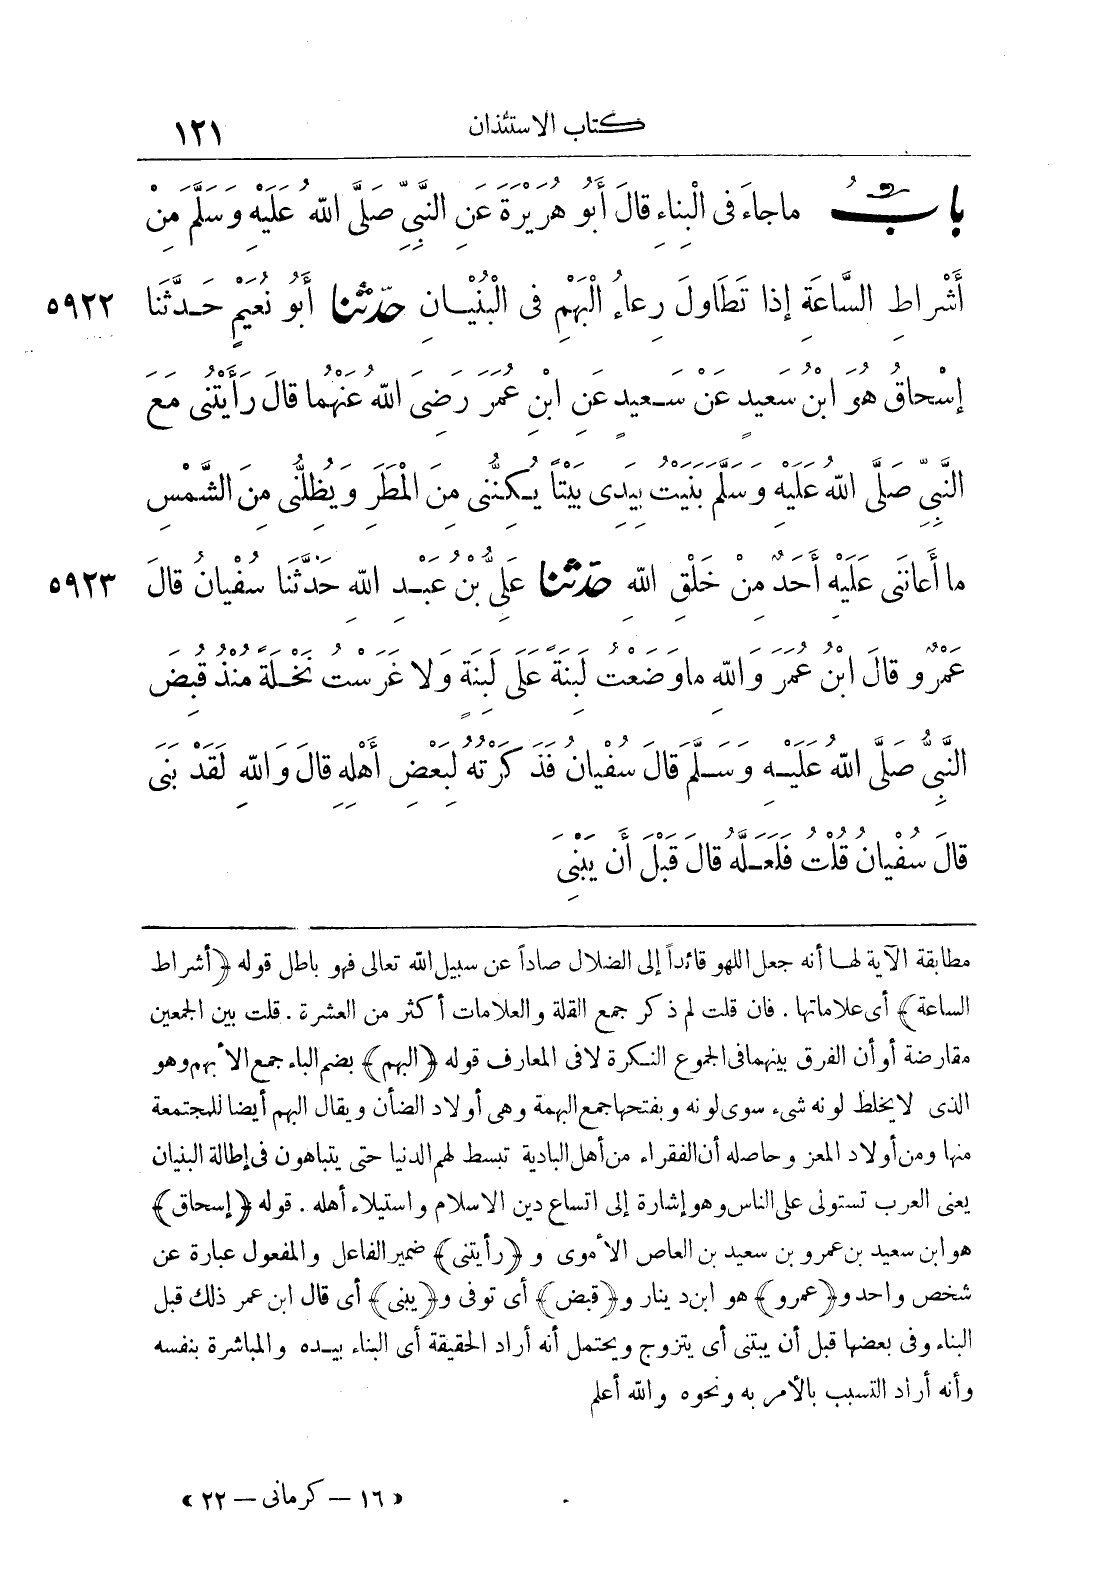 كتاب الاستئذان ١٢١
بابُ ما جاءَ فى الْبِناءِ قالَ أَبُو هُرَيْرَةَ عَنِ النَّبِيِّ صَلَّى اللهُ عَلَيْهِ وَسَلَّمَ مِنْ
أَشْراطِ السَّاعَةِ إذا تَطَاوَلَ رِعاءُ الْبَهْمِ فى الْبُنْيانِ حدّثنا أَبُو نُعَيْمٍ حَدَّثَنا ٥٩٢٢
إِسْحاقُ هُوَ ابْنُ سَعيدٍ عَنْ سَعيدٍ عَنِ ابْنِ عُمَرَ رَضِىَ اللهُ عَنْهُما قالَ رَأَيْتُنِى مَعَ
النَّبِيِّ صَلَّى اللهُ عَلَيْهِ وَسَلَّمَ بَنَيْتُ بِيَدِى بَيْتاً يُكِنُّنِى مِنَ الْمَطَرِ وَيُظِلُّنِى مِنَ الشَّمْسِ
ما أَعانَنِى عَلَيْهِ أَحَدٌ مِنْ خَلْقِ اللهِ حدّثنا عَلِىُّ بْنُ عَبْدِ اللهِ حَدَّثَنا سُفْيانُ قالَ ٥٩٢٣
عَمْرٌو قالَ ابْنُ عُمَرَ وَاللهِ ما وَضَعْتُ لَبِنَةً عَلَى لَبِنَةٍ وَلا غَرَسْتُ نَخْلَةً مُنْذُ قُبِضَ
النَّبِيُّ صَلَّى اللهُ عَلَيْهِ وَسَلَّمَ قالَ سُفْيانُ فَذَكَرْتُهُ لِبَعْضِ أَهْلِهِ قالَ وَاللهِ لَقَدْ بَنَى
قالَ سُفْيانُ قُلْتُ فَلَعَلَّهُ قالَ قَبْلَ أَن يَبْنِىَ
مطابقة الآية لها أنه جعل اللهو قائداً إلى الضلال صاداً عن سبيل الله تعالى فهو باطل قوله ﴿أشراط
الساعة﴾ أى علاماتها . فان قلت لم ذكر جمع القلة والعلامات أكثر من العشرة . قلت بين الجمعين
مقارضة أو أن الفرق بينهما فى الجموع النكرة لا فى المعارف قوله ﴿البهم﴾ بضم الباء جمع الأبهم وهو
الذى لا يخلط لونه شىء سوى لونه وبفتحها جمع البهمة وهى أولاد الضأن ويقال البهم أيضا للمجتمعة
منها ومن أولاد المعز وحاصله أن الفقراء من أهل البادية تبسط لهم الدنيا حتى يتباهون فى إطالة البنيان
يعنى العرب تستولى على الناس وهو إشارة إلى اتساع دين الاسلام واستيلاء أهله . قوله ﴿إسحاق﴾
هو ابن سعيد بن عمرو بن سعيد بن العاص الأموى و ﴿رأيتنى﴾ ضمير الفاعل والمفعول عبارة عن
شخص واحد و﴿عمرو﴾ هو ابن دينار و﴿قبض﴾ أى توفى و﴿يبنى﴾ أى قال ابن عمر ذلك قبل
البناء وفى بعضها قبل أن يبتنى أى يتزوج ويحتمل أنه أراد الحقيقة أى البناء بيده والمباشرة بنفسه
وأنه أراد التسبب بالأمر به ونحوه والله أعلم
« ١٦ – كرمانى – ٢٢ »